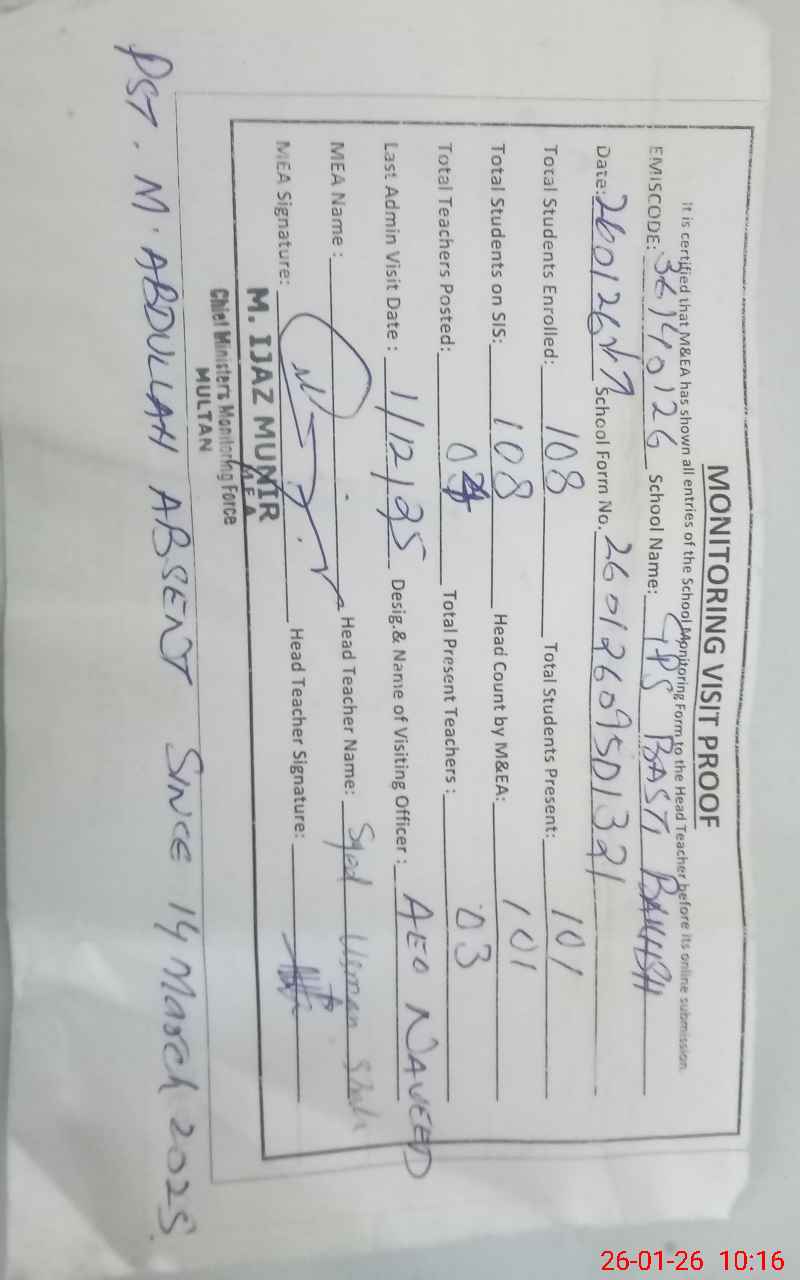 MONITORING VISIT PROOF
It is certified that M&EA has shown all entries of the School Monitoring Form to the Head Teacher before its online submission.
EMISCODE: 36140126 School Name: GPS BASTI BAKHSH
Date: 260126 School Form No. 26012609501321
Total Students Enrolled: 108 Total Students Present: 101
Total Students on SIS: 108 Head Count by M&EA: 101
Total Teachers Posted: 04 Total Present Teachers : 03
Last Admin Visit Date : 1/12/25 Desig.& Name of Visiting Officer : AEO NAVEED
MEA Name : Head Teacher Name: Syed Usman Shah
MEA Signature: Head Teacher Signature:
M. IJAZ MUNIR
M E A
Chief Ministers Monitoring Force
MULTAN
PST. M. ABDULLAH ABSENT SINCE 14 March 2025.
26-01-26 10:16